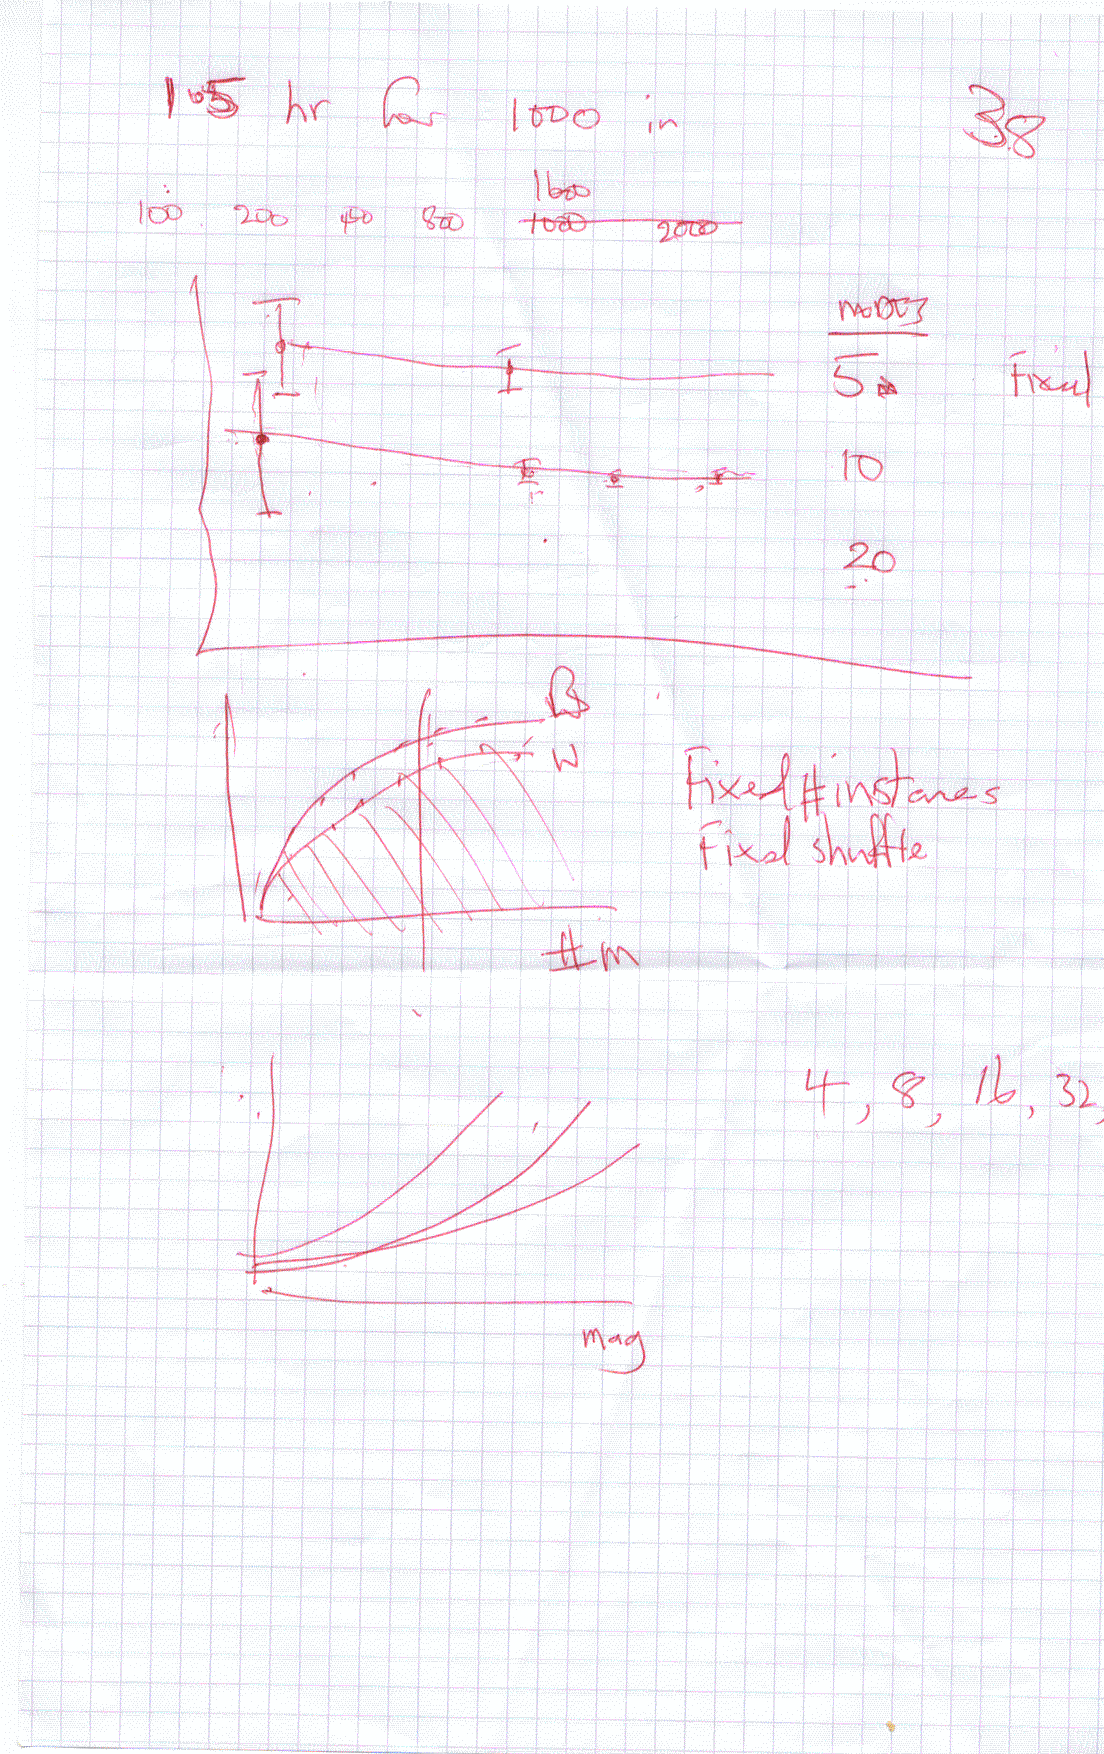 1.5 hr for 1000 in
38
1600
100 200 400 800 1000 2000
NODES
5 Fixed
10
20
B
W
Fixed # instances
Fixed shuffle
# m
4, 8, 16, 32,
mag